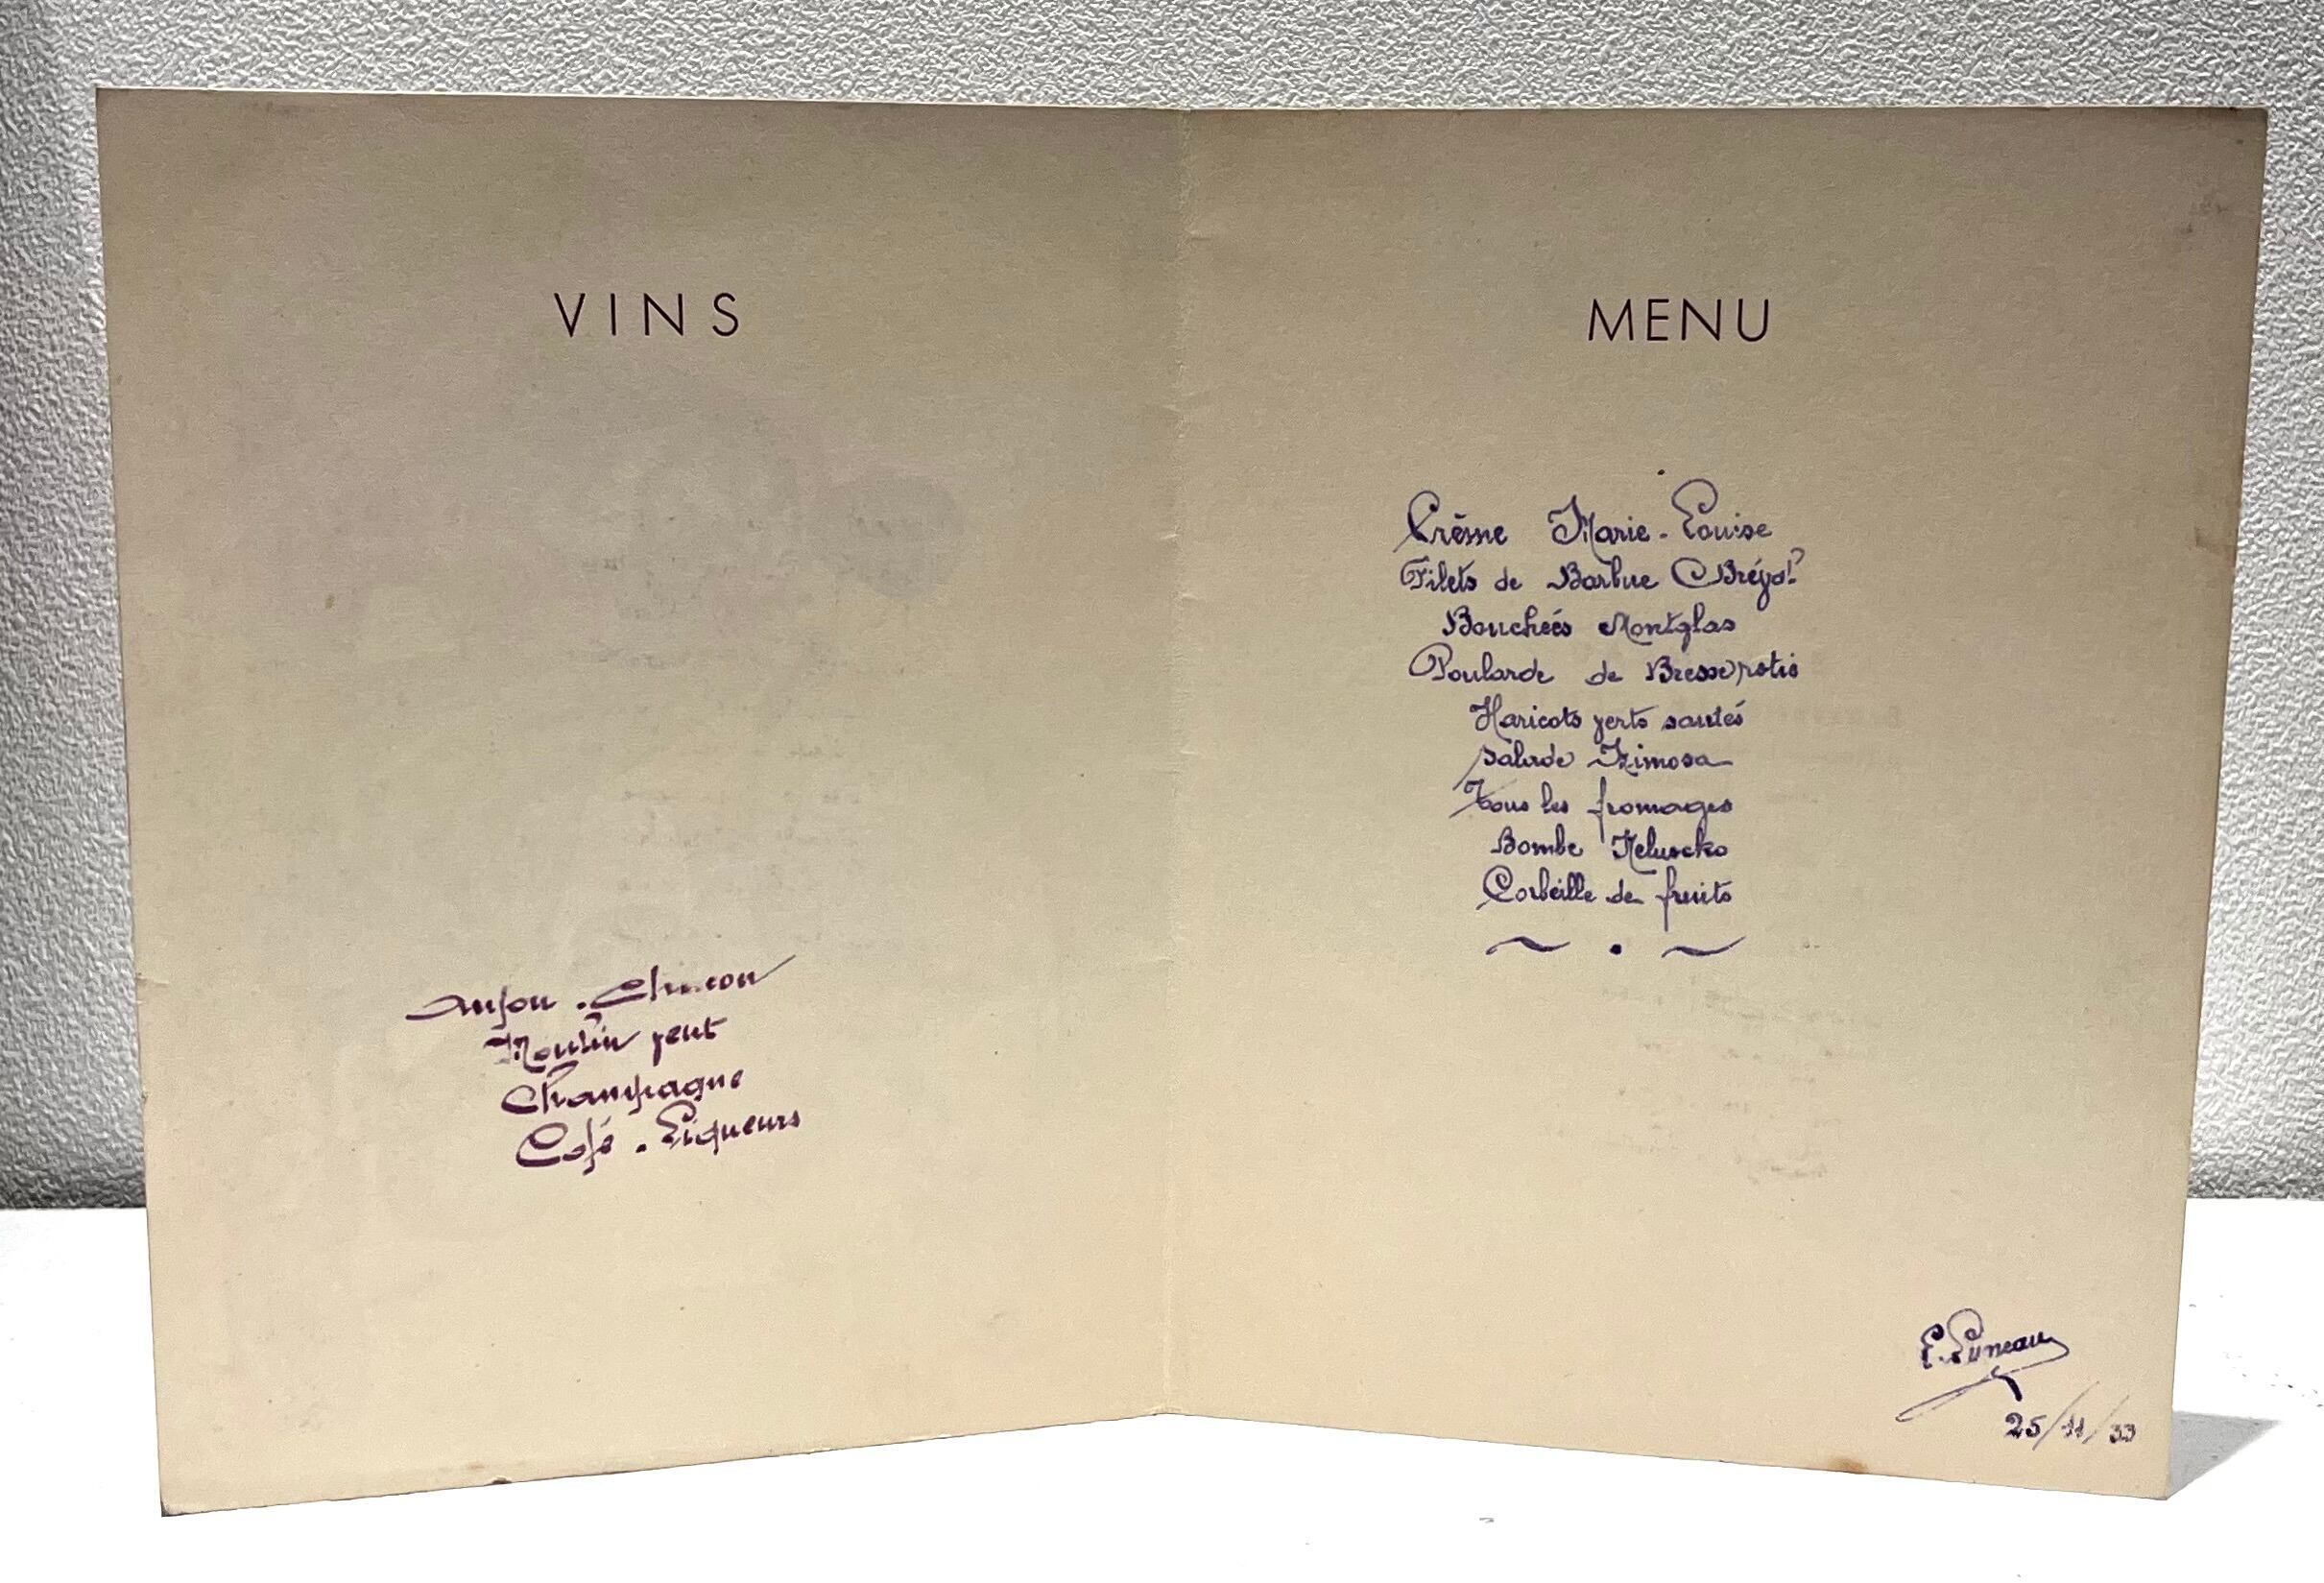 VINS
Anjou . Chinon
Moulin vent
Champagne
Café . Liqueurs
MENU
Crème Marie-Louise
Filets de Barbue
Bouchées Montglas
Poularde de Bresse rotis
Haricots verts sautés
Salade Mimosa
Tous les fromages
Bombe Nelusko
Corbeille de fruits
~ . ~
E.
25/11/33